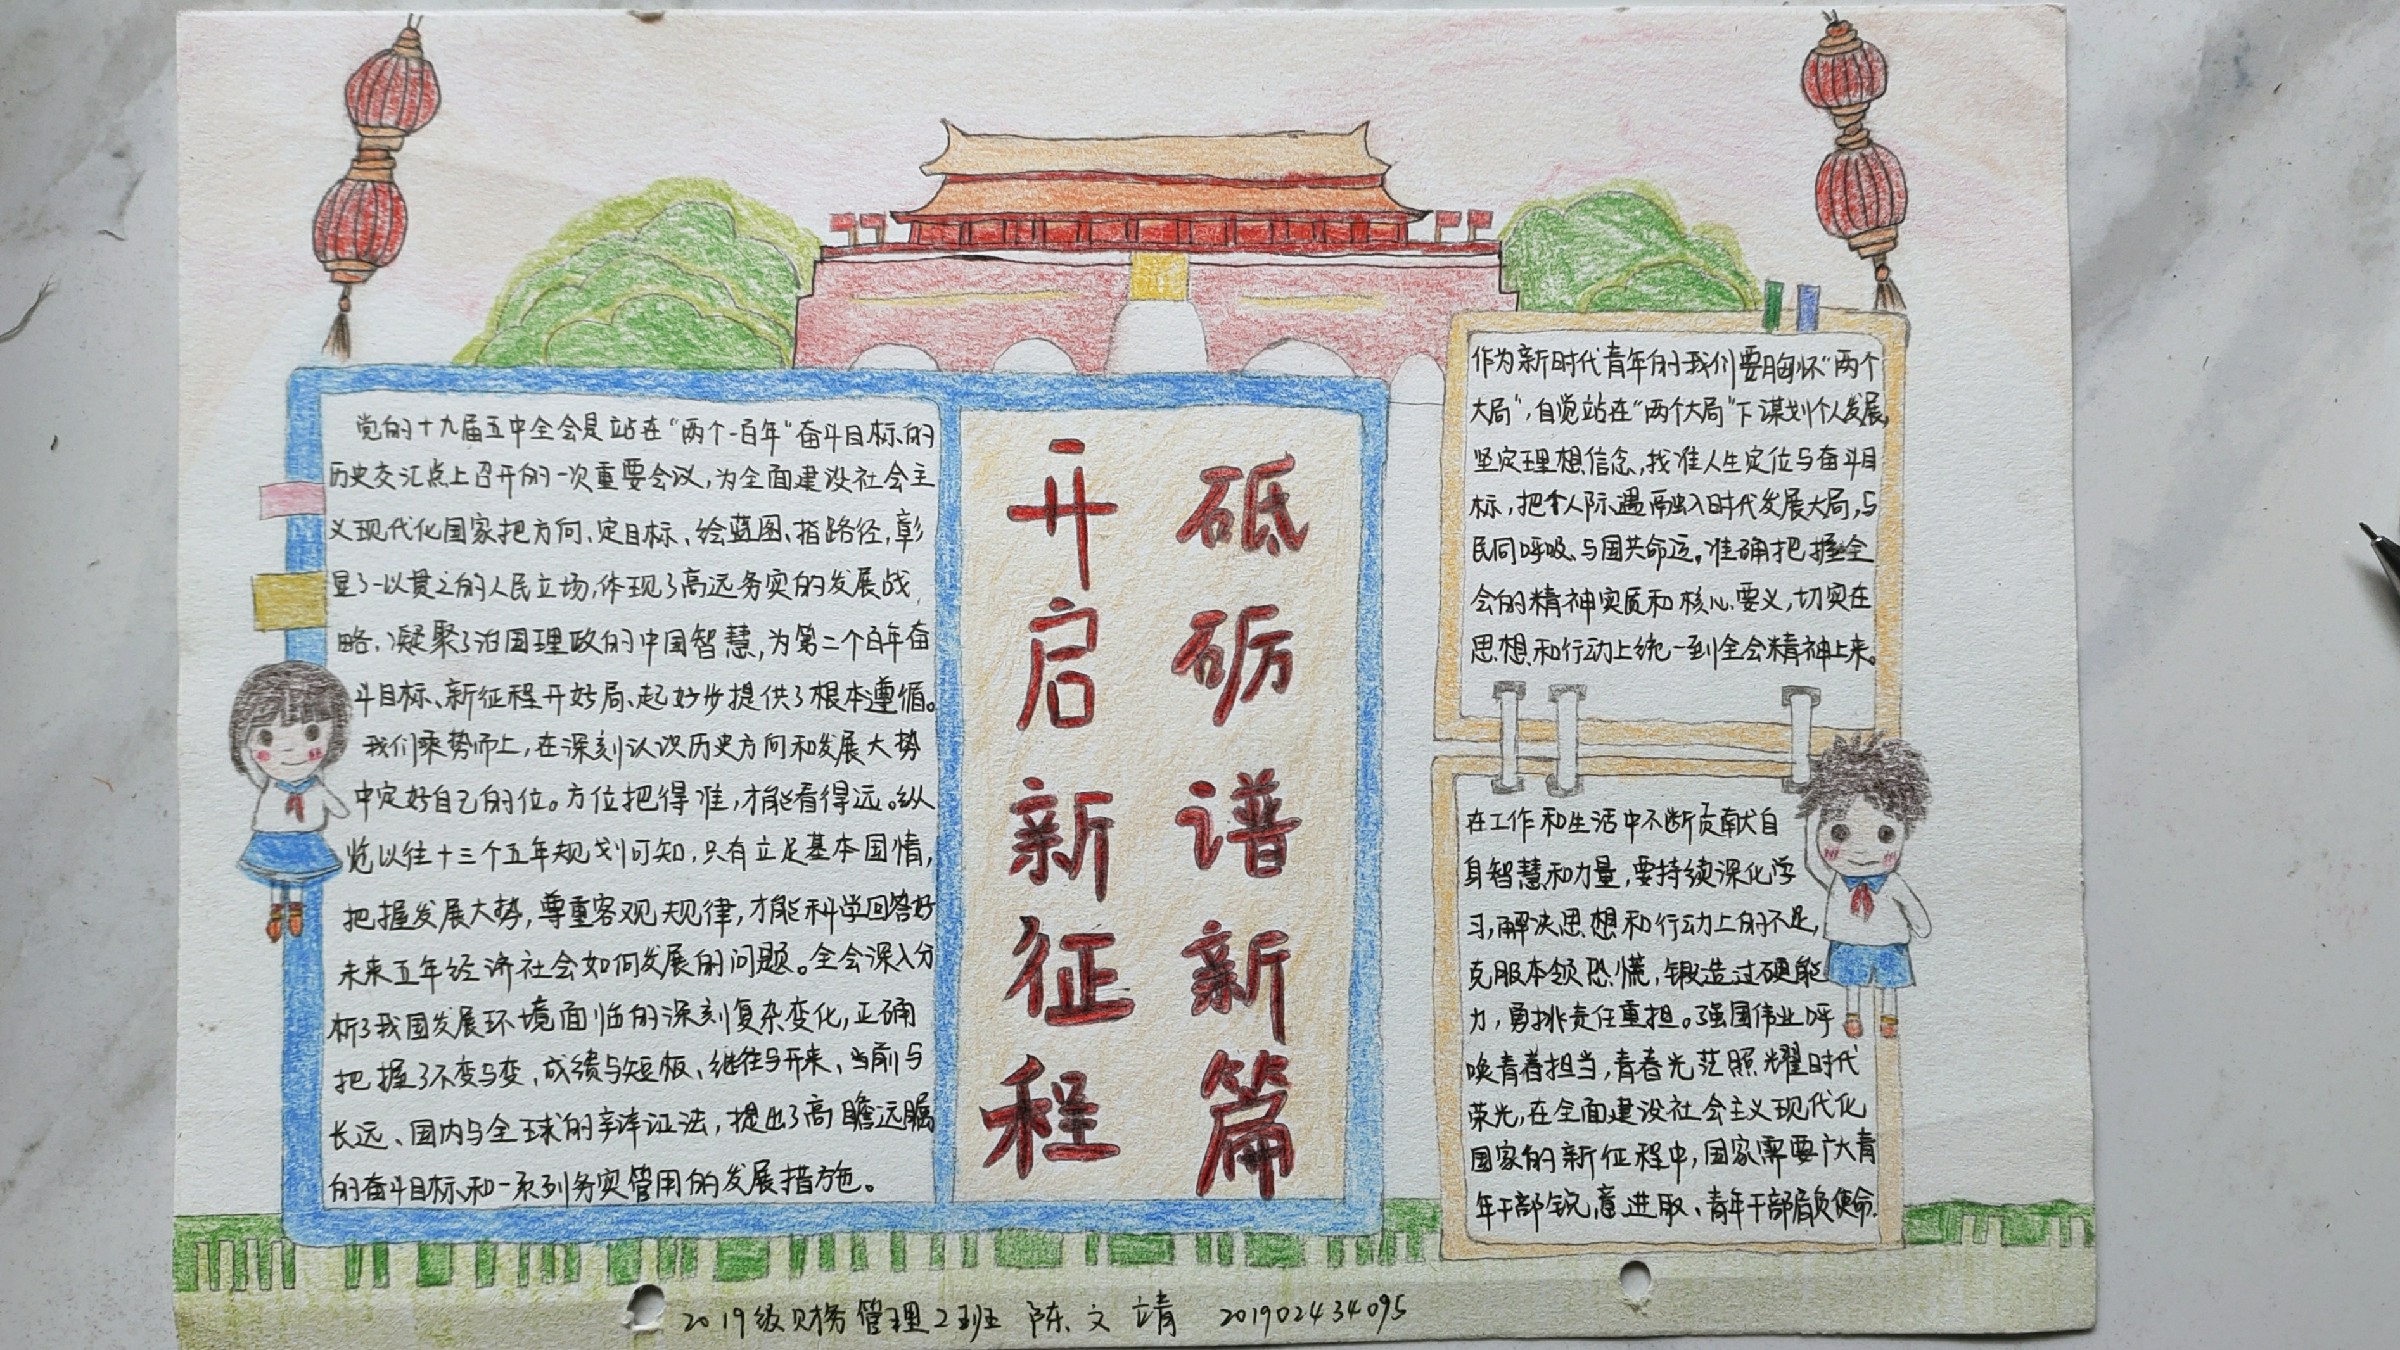 党的十九届五中全会是站在“两个一百年”奋斗目标的
历史交汇点上召开的一次重要会议，为全面建设社会主
义现代化国家把方向、定目标、绘蓝图、指路径，彰
显了一以贯之的人民立场，体现了高远务实的发展战
略，凝聚了治国理政的中国智慧，为第二个百年奋
斗目标、新征程开好局、起好步提供了根本遵循。
我们乘势而上，在深刻认识历史方向和发展大势
中定好自己的位。方位把得准，才能看得远。纵
览以往十三个五年规划可知，只有立足基本国情，
把握发展大势，尊重客观规律，才能科学回答好
未来五年经济社会如何发展的问题。全会深入分
析了我国发展环境面临的深刻复杂变化，正确
把握了不变与变、成绩与短板、继往与开来、当前与
长远、国内与全球的辩证法，提出了高瞻远瞩
的奋斗目标和一系列务实管用的发展措施。
砥砺谱新篇
开启新征程
作为新时代青年的我们要胸怀“两个
大局”，自觉站在“两个大局”下谋划个人发展，
坚定理想信念，找准人生定位与奋斗目
标，把个人际遇融入时代发展大局，与
民同呼吸、与国共命运。准确把握全
会的精神实质和核心要义，切实在
思想和行动上统一到全会精神上来。
在工作和生活中不断贡献自
身智慧和力量，要持续深化学
习，解决思想和行动上的不足，
克服本领恐慌，锻造过硬能
力，勇挑责任重担。强国伟业呼
唤青春担当，青春光芒照耀时代
荣光，在全面建设社会主义现代化
国家的新征程中，国家需要广大青
年干部锐意进取、青年干部肩负使命.
2019级财务管理2班 陈文靖 201902434095